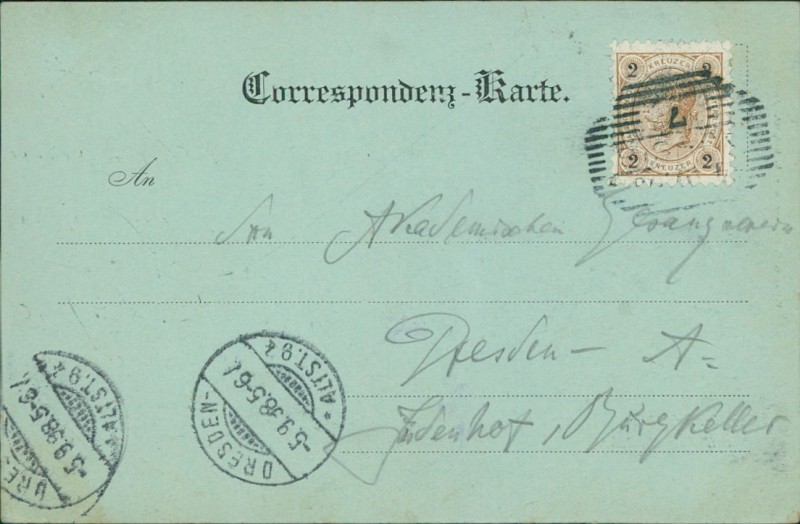 Correspondenz-Karte.
2 KREUZER 2
2 KREUZER 2
7
An
den Akademischen Gesangverein
Dresden - A-
Judenhof, Burgkeller
DRESDEN-
* ALTST. 9 z
5.9.98.5-6 N.
DRES
* ALTST. 9 z
5.9.98.5-6 N.